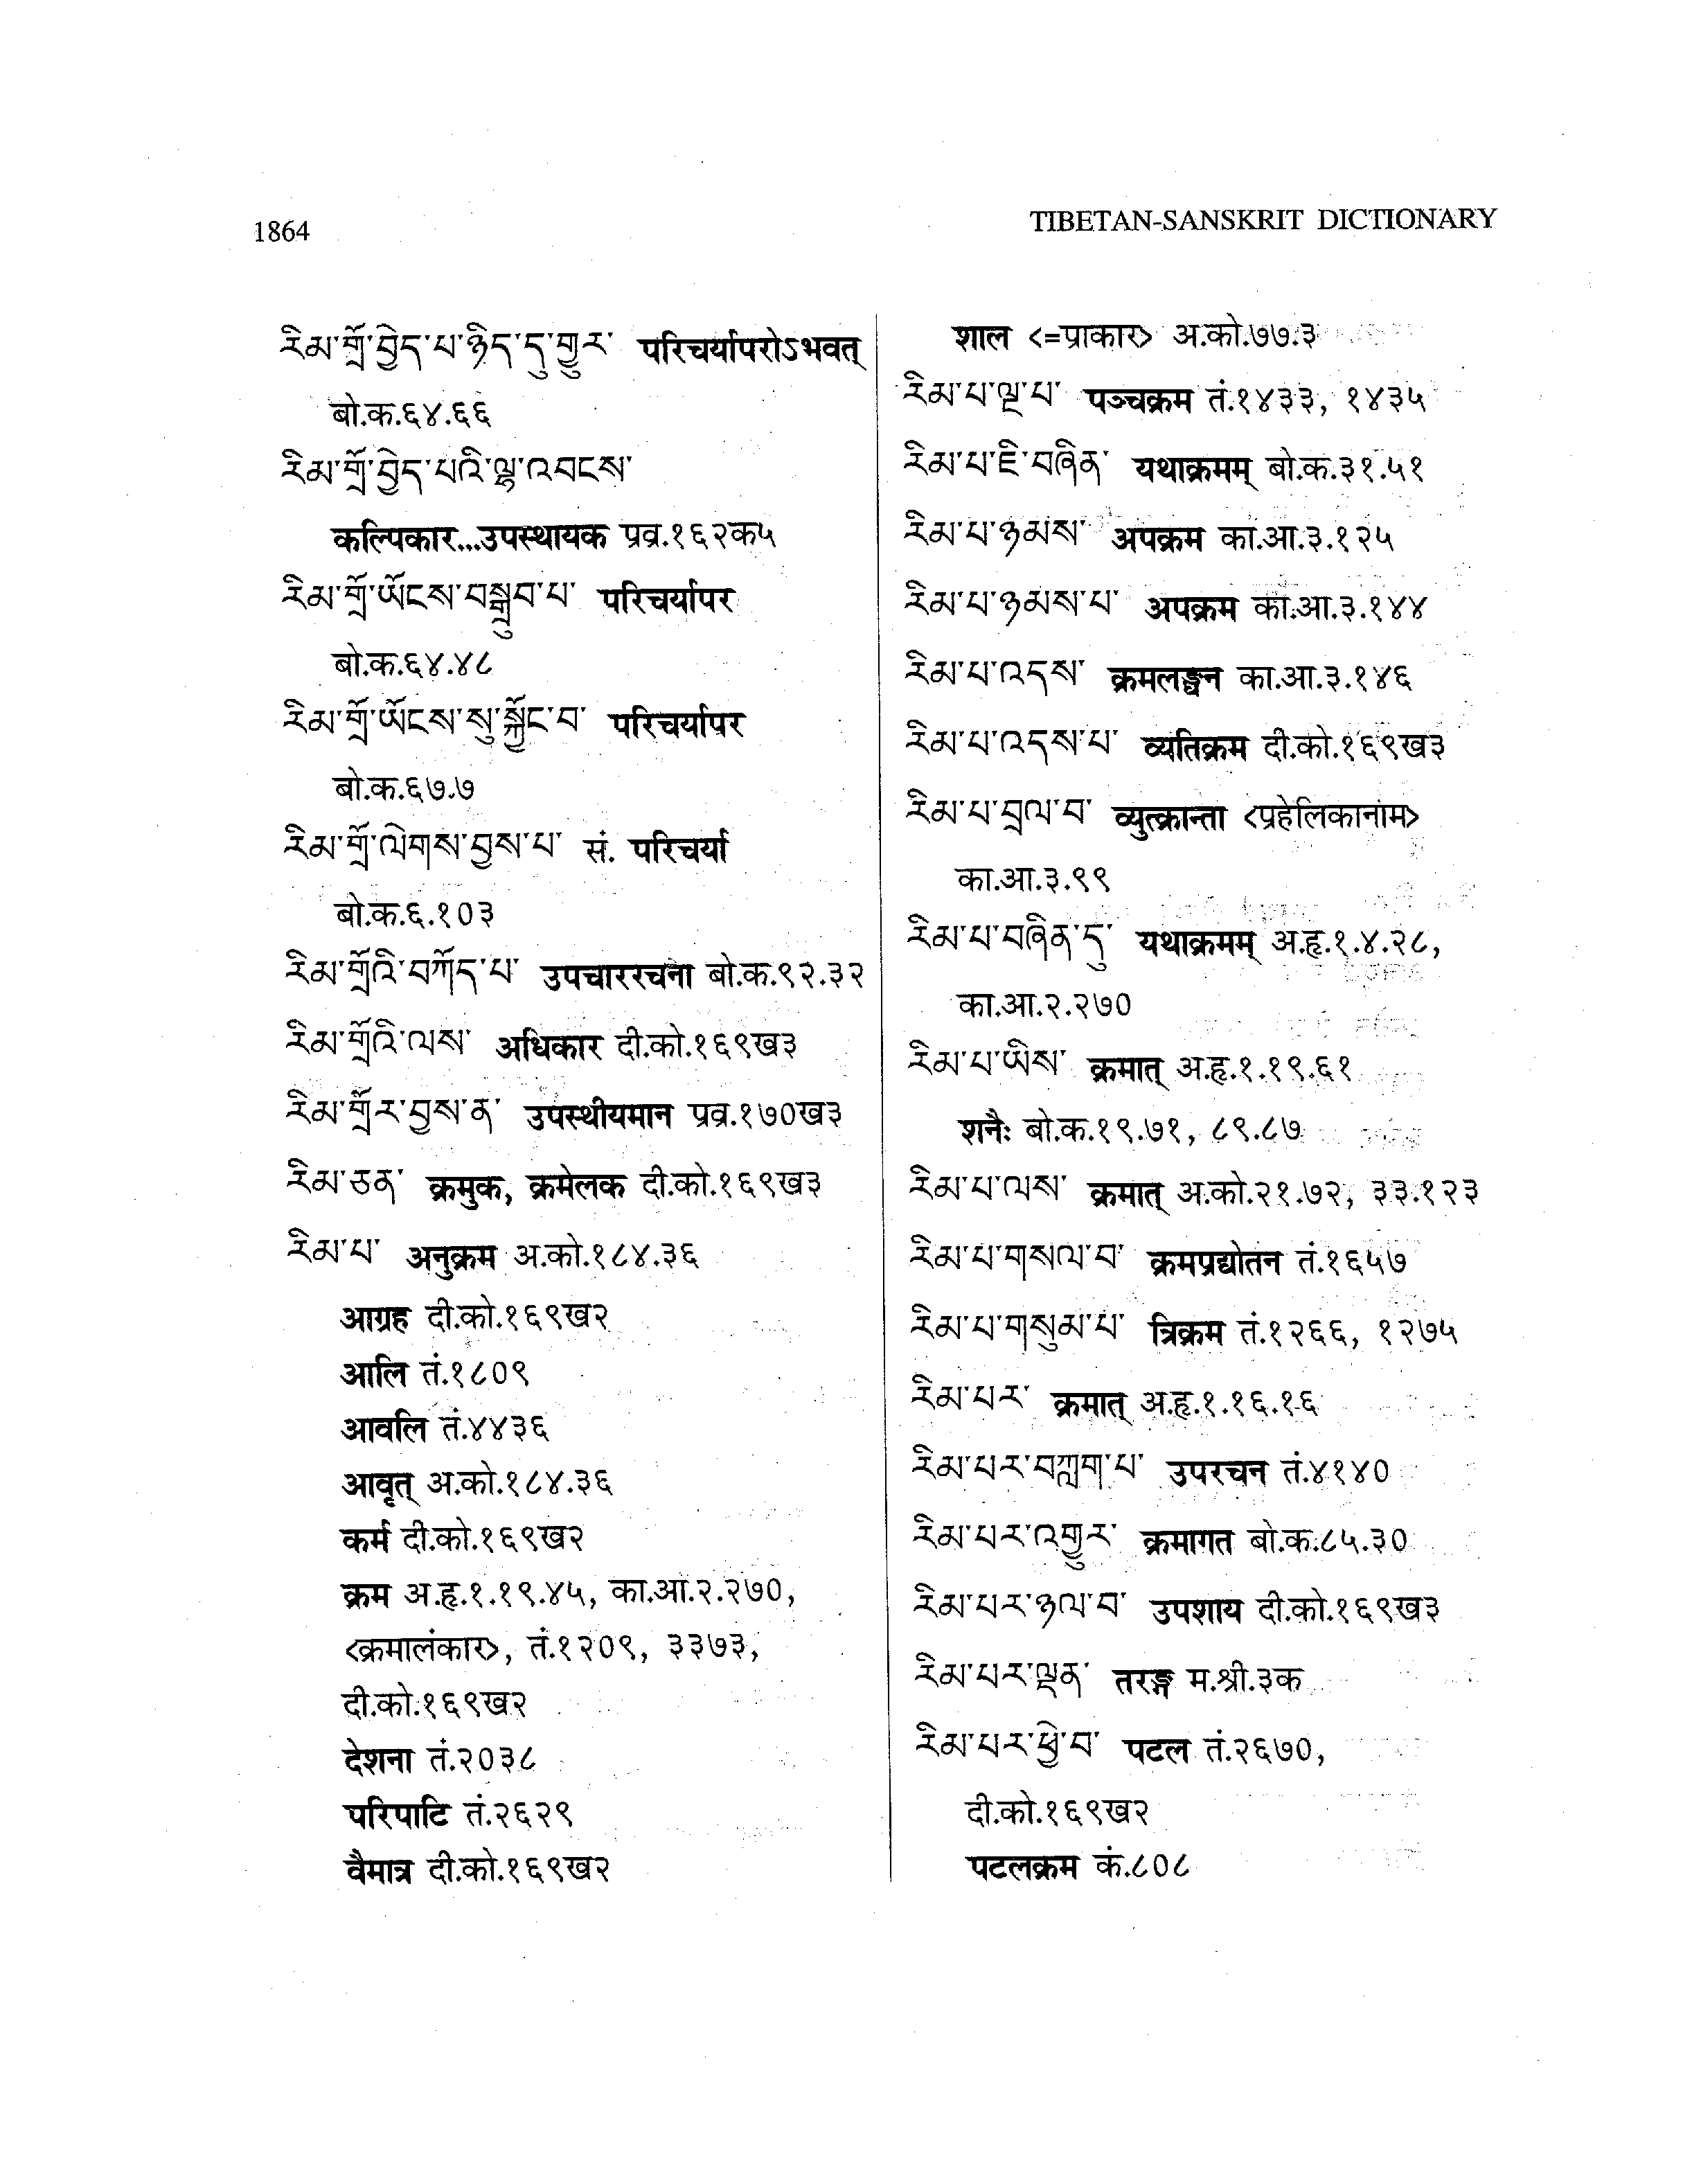 1864
TIBETAN-SANSKRIT DICTIONARY
རིམ་གྲོ་བྱེད་པ་ཉིད་དུ་གྱུར་ परिचर्यापरोऽभवत्
बो.क.६४.६६
རིམ་གྲོ་བྱེད་པའི་ལྷ་འབངས་
कल्पिकार...उपस्थायक प्रव्र.१६२क५
རིམ་གྲོ་ཡོངས་བསྒྲུབ་པ་ परिचर्यापर
बो.क.६४.४८
རིམ་གྲོ་ཡོངས་སུ་སྐྱོང་བ་ परिचर्यापर
बो.क.६७.७
རིམ་གྲོ་ལེགས་བྱས་པ་ सं. परिचर्या
बो.क.६.१०३
རིམ་གྲོའི་བཀོད་པ་ उपचाररचना बो.क.९२.३२
རིམ་གྲོའི་ལས་ अधिकार दी.को.१६९ख३
རིམ་གྲོར་བྱས་ན་ उपस्थीयमान प्रव्र.१७०ख३
རིམ་ཅན་ क्रमुक, क्रमेलक दी.को.१६९ख३
རིམ་པ་ अनुक्रम अ.को.१८४.३६
आग्रह दी.को.१६९ख२
आलि तं.१८०९
आवलि तं.४४३६
आवृत् अ.को.१८४.३६
कर्म दी.को.१६९ख२
क्रम अ.हृ.१.१९.४५, का.आ.२.२७०,
<क्रमालंकार>, तं.१२०९, ३३७३,
दी.को.१६९ख२
देशना तं.२०३८
परिपाटि तं.२६२९
वैमात्र दी.को.१६९ख२
शाल <=प्राकार> अ.को.७७.३
རིམ་པ་ལྔ་པ་ पञ्चक्रम तं.१४३३, १४३५
རིམ་པ་ཇི་བཞིན་ यथाक्रमम् बो.क.३१.५१
རིམ་པ་ཉམས་ अपक्रम का.आ.३.१२५
རིམ་པ་ཉམས་པ་ अपक्रम का.आ.३.१४४
རིམ་པ་འདས་ क्रमलङ्घन का.आ.३.१४६
རིམ་པ་འདས་པ་ व्यतिक्रम दी.को.१६९ख३
རིམ་པ་བྲལ་བ་ व्युत्क्रान्ता <प्रहेलिकानाम>
का.आ.३.९९
རིམ་པ་བཞིན་དུ་ यथाक्रमम् अ.हृ.१.४.२८,
का.आ.२.२७०
རིམ་པ་ཡིས་ क्रमात् अ.हृ.१.१९.६१
शनैः बो.क.१९.७१, ८९.८७
རིམ་པ་ལས་ क्रमात् अ.को.२१.७२, ३३.१२३
རིམ་པ་གསལ་བ་ क्रमप्रद्योतन तं.१६५७
རིམ་པ་གསུམ་པ་ त्रिक्रम तं.१२६६, १२७५
རིམ་པར་ क्रमात् अ.हृ.१.१६.१६
རིམ་པར་བཀླག་པ་ उपरचन तं.४१४०
རིམ་པར་འགྱུར་ क्रमागत बो.क.८५.३०
རིམ་པར་ཉལ་བ་ उपशाय दी.को.१६९ख३
རིམ་པར་ལྡན་ तरङ्ग म.श्री.३क
རིམ་པར་ཕྱེ་བ་ पटल तं.२६७०,
दी.को.१६९ख२
पटलक्रम कं.८०८